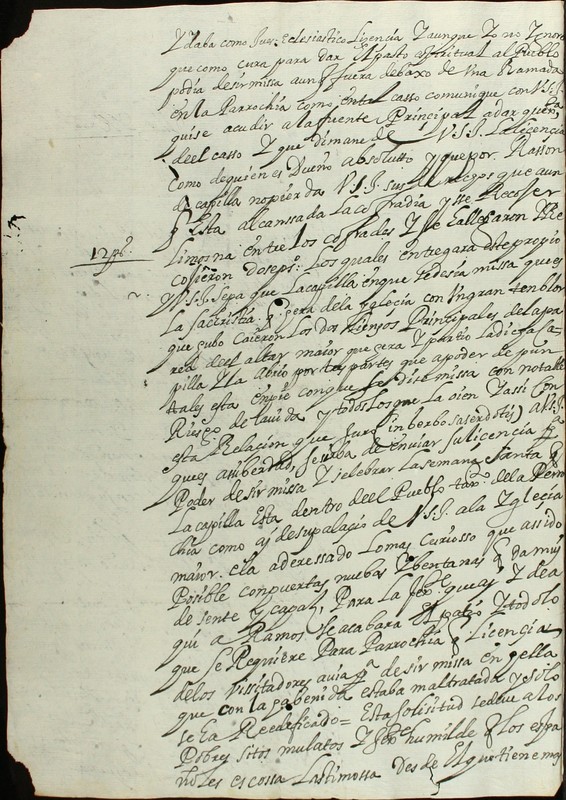 Y daba como Jues eclesiastico Lisencia Y aunque Yo no Ygnoro
que como cura para dar El pasto espiritual al Pueblo
podia desir missa aunq fuera debaxo de Una Ramada
en la Parrochia como en tal casso comunique con V.S.I.
quise acudir a la fuente Principal a dar quenta
deel casso Y que dimane de V.S.I. la licencia
como de quien es Dueño absolutto y que por Rasson
de capilla no pierda V.S.I. sus derechos que aun
q esta alcanssada La cofradia y se Recoser
Limosna entre Los cofrades Y se allegaron Y Re
12 ps.
cosieron dose ps. Los quales entregara este propio
Y V.S.I. sepa que La capilla en que se desia missa que es
La sacristia q era de la Yglecia con Un gran tenblor
que hubo caieron Los dos lienzos Principales de la pa
red deel altar maior que era Y partio la dicha ca
pilla Y la abrio por tres partes que a poder de pun
tales esta en pie con que se dise missa con notable
Riesgo de la vida Y todos Los que La oien Y assi con
esta Relacion que Juro in berbo saserdotis a V.S.I.
que es assi berdad, se sirba de enviar su licencia pa
Poder desir missa Y selebrar La semana Santa q
La capilla Esta dentro deel Pueblo de la Perro
chia como ay de su palacio de V.S.I. a la Yglecia
maior. ela aderessado Lo mas Curiosso que assido
Posible con puertas nuebas Y bentanas q da mui
desente Y capas Para La que ay Y de a
qui a Ramos Se acabara El pateo Y todo lo
que se Requiere Para Parrochia q Licencia
de los Vissitadores avia pa desir missa en ella
que con la abenida estaba maltratada y solo
se ha Reedificado = Esta solisitud se deve a los
Pobres sitos mulatos Y gente humilde q los espa
ñoles es cossa Lastimossa des de El que tiene mas